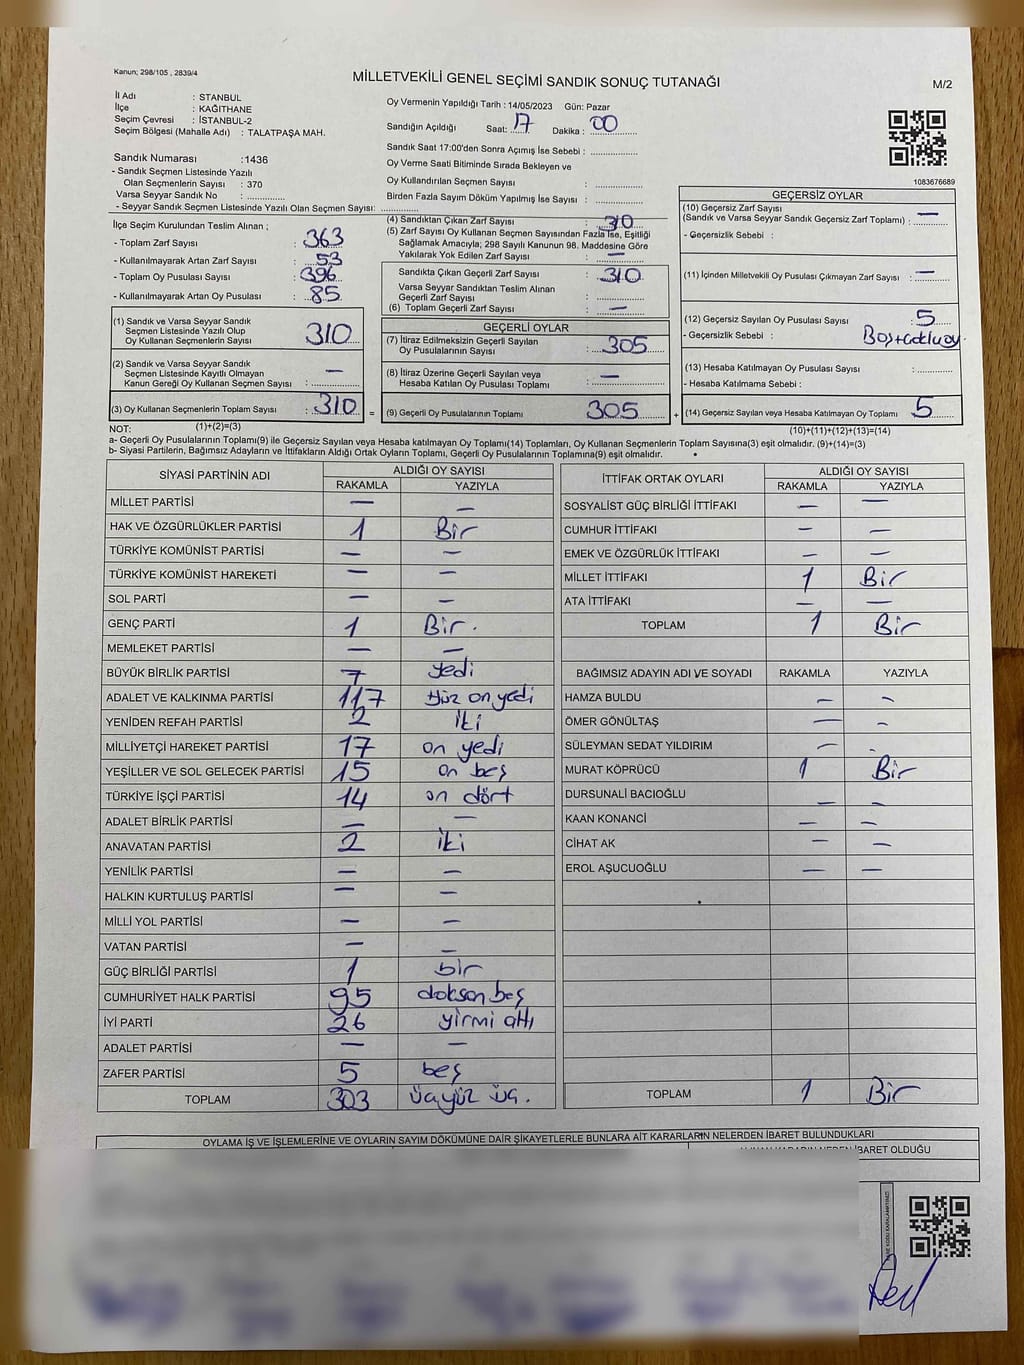 Kanun; 298/105 , 2839/4
MİLLETVEKİLİ GENEL SEÇİMİ SANDIK SONUÇ TUTANAĞI
M/2
İl Adı : STANBUL
İlçe : KAĞITHANE
Seçim Çevresi : İSTANBUL-2
Seçim Bölgesi (Mahalle Adı) : TALATPAŞA MAH.
Sandık Numarası :1436
- Sandık Seçmen Listesinde Yazılı
Olan Seçmenlerin Sayısı : 370
Varsa Seyyar Sandık No : ..............
- Seyyar Sandık Listesinde Yazılı Olan Seçmen Sayısı: ..............
Oy Vermenin Yapıldığı Tarih : 14/05/2023 Gün: Pazar
Sandığın Açıldığı Saat: 17 Dakika : 00
Sandık Saat 17:00'den Sonra Açımış İse Sebebi : ..............
Oy Verme Saati Bitiminde Sırada Bekleyen ve
Oy Kullandırılan Seçmen Sayısı : ..............
Birden Fazla Sayım Döküm Yapılmış İse Sayısı : ..............
1083676689
İlçe Seçim Kurulundan Teslim Alınan ;
- Toplam Zarf Sayısı : 363
- Kullanılmayarak Artan Zarf Sayısı : 53
- Toplam Oy Pusulası Sayısı : 396
- Kullanılmayarak Artan Oy Pusulası : 85
(1) Sandık ve Varsa Seyyar Sandık
Seçmen Listesinde Yazılı Olup
Oy Kullanan Seçmenlerin Sayısı : 310
(2) Sandık ve Varsa Seyyar Sandık
Seçmen Listesinde Kayıtlı Olmayan
Kanun Gereği Oy Kullanan Seçmen Sayısı : —
(3) Oy Kullanan Seçmenlerin Toplam Sayısı : 310 =
(1)+(2)=(3)
(4) Sandıktan Çıkan Zarf Sayısı : 310
(5) Zarf Sayısı Oy Kullanan Seçmen Sayısından Fazla İse, Eşitliği
Sağlamak Amacıyla; 298 Sayılı Kanunun 98. Maddesine Göre
Yakılarak Yok Edilen Zarf Sayısı : —
Sandıkta Çıkan Geçerli Zarf Sayısı : 310
Varsa Seyyar Sandıktan Teslim Alınan
Geçerli Zarf Sayısı : ..............
(6) Toplam Geçerli Zarf Sayısı : —
GEÇERLİ OYLAR
(7) İtiraz Edilmeksizin Geçerli Sayılan
Oy Pusulalarının Sayısı : 305
(8) İtiraz Üzerine Geçerli Sayılan veya
Hesaba Katılan Oy Pusulası Toplamı : —
(9) Geçerli Oy Pusulalarının Toplamı : 305 +
GEÇERSİZ OYLAR
(10) Geçersiz Zarf Sayısı
(Sandık ve Varsa Seyyar Sandık Geçersiz Zarf Toplamı) : —
- Geçersizlik Sebebi :
(11) İçinden Milletvekili Oy Pusulası Çıkmayan Zarf Sayısı : —
(12) Geçersiz Sayılan Oy Pusulası Sayısı : 5
- Geçersizlik Sebebi :
(13) Hesaba Katılmayan Oy Pusulası Sayısı : ..............
- Hesaba Katılmama Sebebi :
(14) Geçersiz Sayılan veya Hesaba Katılmayan Oy Toplamı : 5
(10)+(11)+(12)+(13)=(14)
NOT:
a- Geçerli Oy Pusulalarının Toplamı(9) ile Geçersiz Sayılan veya Hesaba katılmayan Oy Toplamı(14) Toplamları, Oy Kullanan Seçmenlerin Toplam Sayısına(3) eşit olmalıdır. (9)+(14)=(3)
b- Siyasi Partilerin, Bağımsız Adayların ve İttifakların Aldığı Ortak Oyların Toplamı, Geçerli Oy Pusulalarının Toplamına(9) eşit olmalıdır.
SİYASİ PARTİNİN ADI ALDIĞI OY SAYISI
RAKAMLA YAZIYLA
MİLLET PARTİSİ — —
HAK VE ÖZGÜRLÜKLER PARTİSİ 1 Bir
TÜRKİYE KOMÜNİST PARTİSİ — —
TÜRKİYE KOMÜNİST HAREKETİ — —
SOL PARTİ — —
GENÇ PARTİ 1 Bir.
MEMLEKET PARTİSİ — —
BÜYÜK BİRLİK PARTİSİ 7 yedi
ADALET VE KALKINMA PARTİSİ 117 yüz on yedi
YENİDEN REFAH PARTİSİ 2 iki
MİLLİYETÇİ HAREKET PARTİSİ 17 on yedi
YEŞİLLER VE SOL GELECEK PARTİSİ 15 on beş
TÜRKİYE İŞÇİ PARTİSİ 14 on dört
ADALET BİRLİK PARTİSİ — —
ANAVATAN PARTİSİ 2 iki
YENİLİK PARTİSİ — —
HALKIN KURTULUŞ PARTİSİ — —
MİLLİ YOL PARTİSİ — —
VATAN PARTİSİ — —
GÜÇ BİRLİĞİ PARTİSİ 1 bir
CUMHURİYET HALK PARTİSİ 95 doksan beş
İYİ PARTİ 26 yirmi altı
ADALET PARTİSİ — —
ZAFER PARTİSİ 5 beş
TOPLAM 303 üçyüz üç.
İTTİFAK ORTAK OYLARI ALDIĞI OY SAYISI
RAKAMLA YAZIYLA
SOSYALİST GÜÇ BİRLİĞİ İTTİFAKI — —
CUMHUR İTTİFAKI — —
EMEK VE ÖZGÜRLÜK İTTİFAKI — —
MİLLET İTTİFAKI 1 Bir
ATA İTTİFAKI — —
TOPLAM 1 Bir
BAĞIMSIZ ADAYIN ADI VE SOYADI RAKAMLA YAZIYLA
HAMZA BULDU — —
ÖMER GÖNÜLTAŞ — —
SÜLEYMAN SEDAT YILDIRIM — —
MURAT KÖPRÜCÜ 1 Bir
DURSUNALİ BACIOĞLU — —
KAAN KONANCİ — —
CİHAT AK — —
EROL AŞUCUOĞLU — —
TOPLAM 1 Bir
OYLAMA İŞ VE İŞLEMLERİNE VE OYLARIN SAYIM DÖKÜMÜNE DAİR ŞİKAYETLERLE BUNLARA AİT KARARLARIN NELERDEN İBARET BULUNDUKLARI
İBARET OLDUĞU